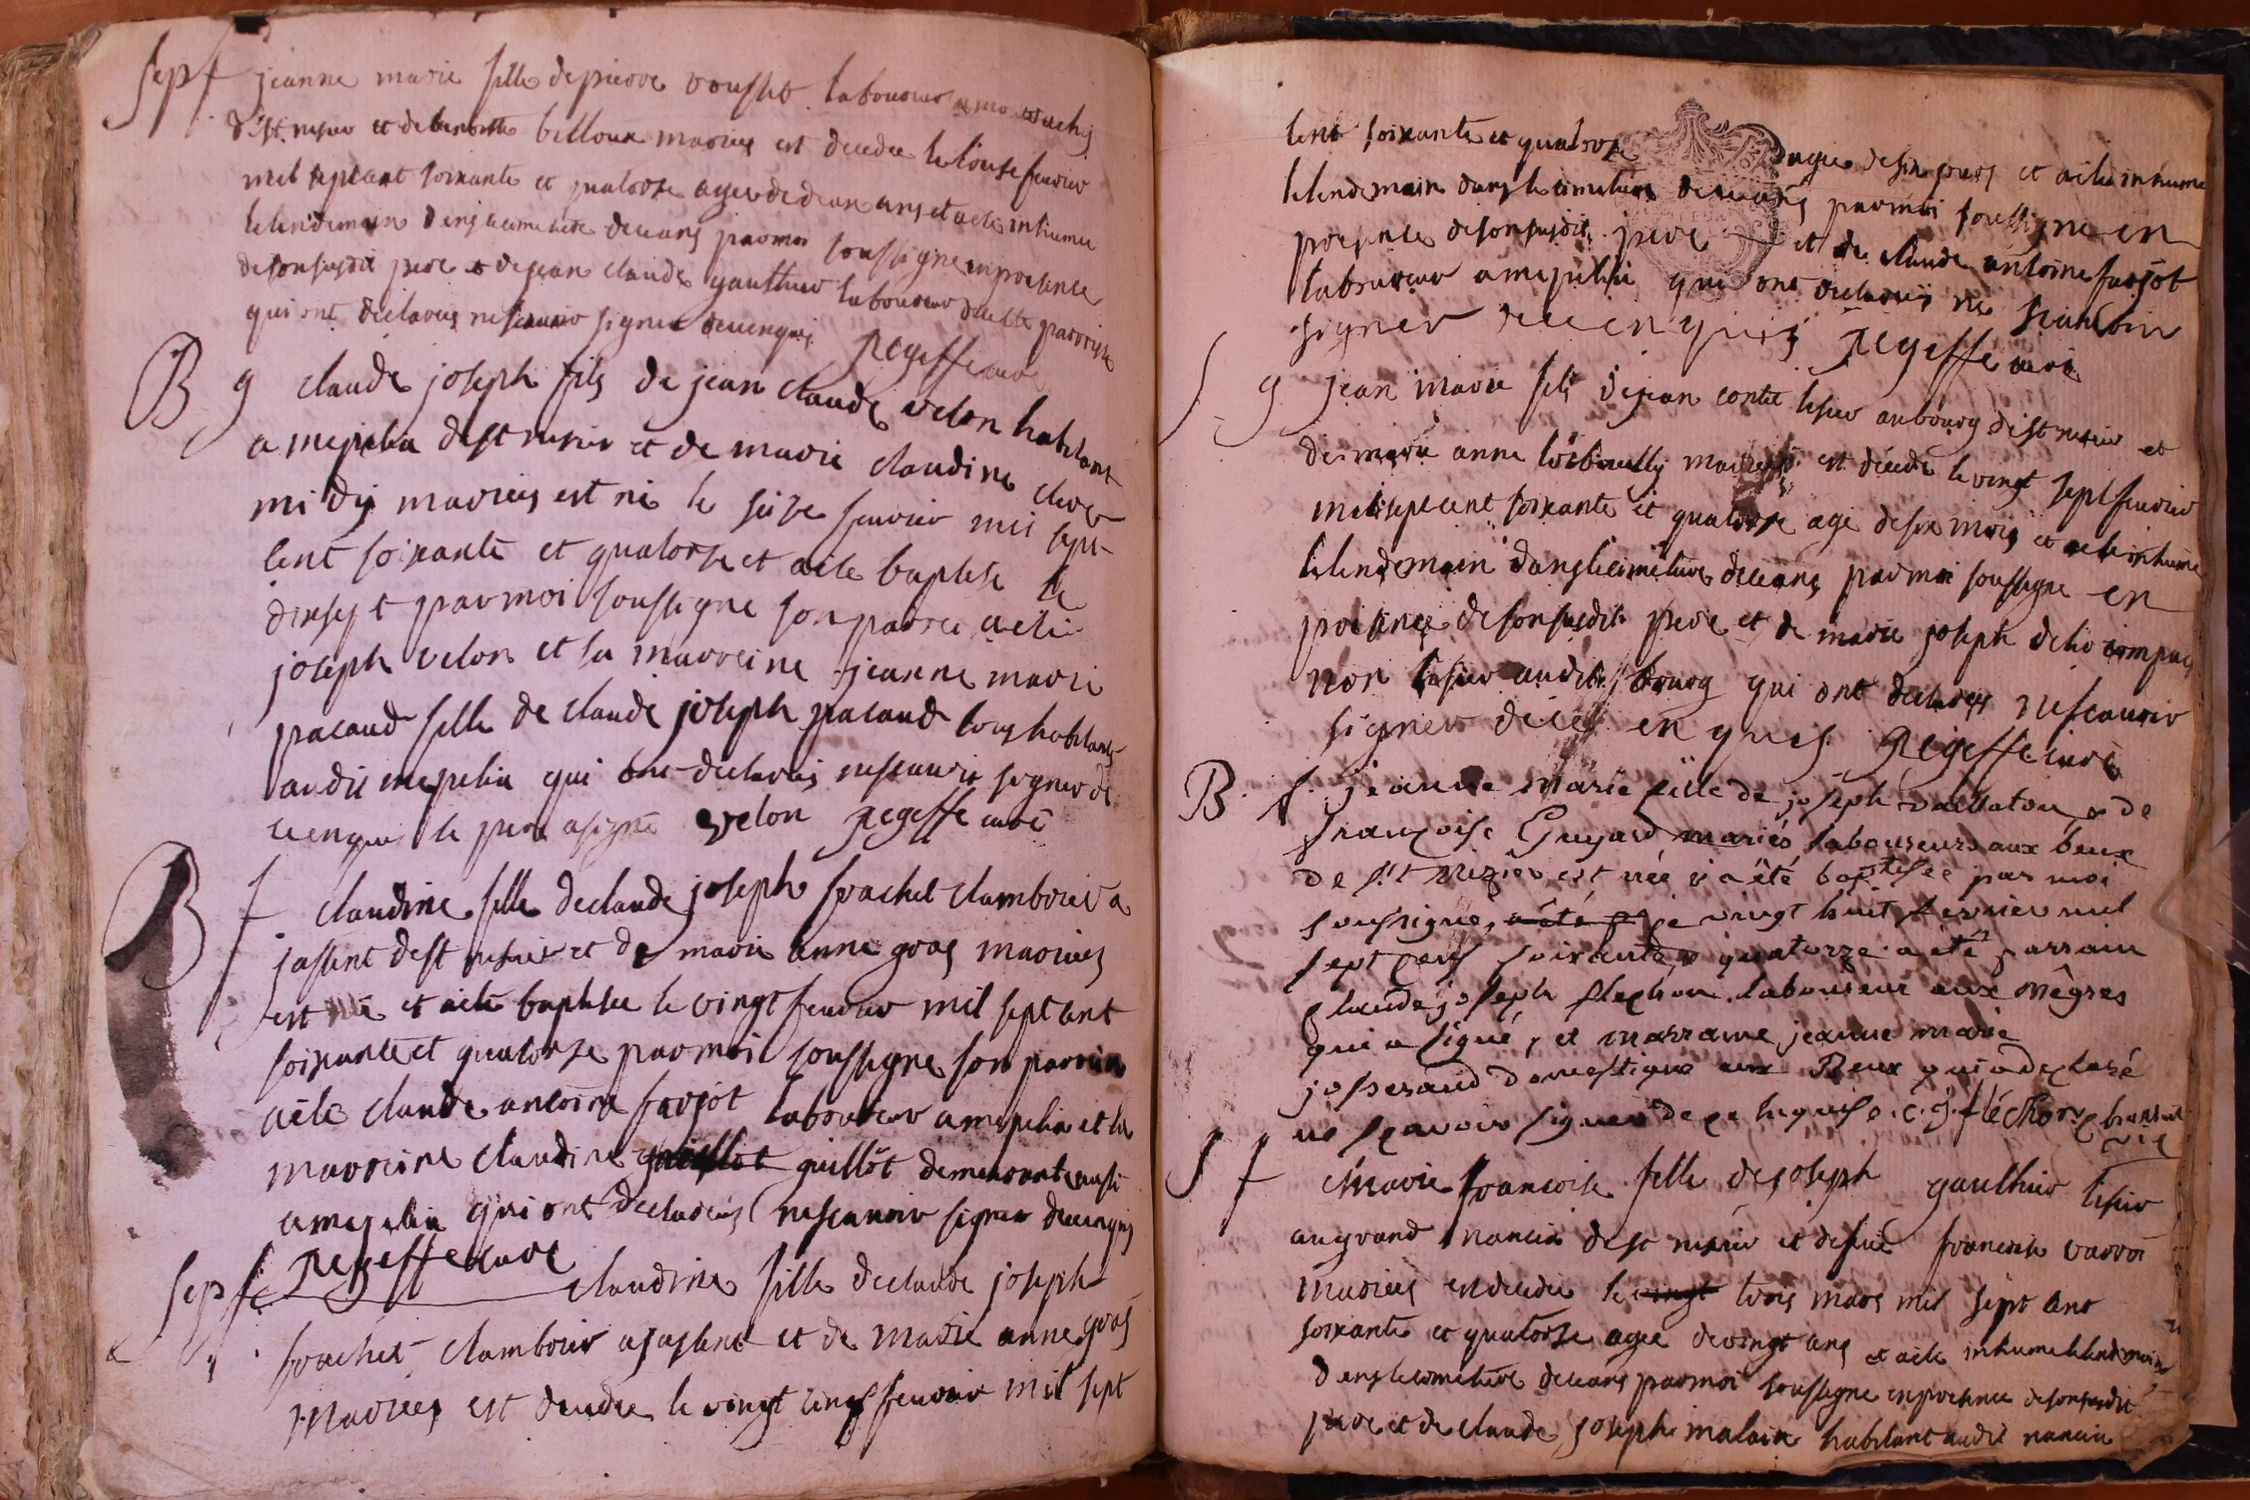 Sep f jeanne marie fille de pierre rousset laboureur
d'st nisier et de benoite belloux mariés est decedee le douse fevrier
mil septcent soixante et quatorse agee de deux ans et a ete inhumee
le lendemain dans le cimetiere de ceans par moi soussigne en presence
de son susdit pere et de jean claude gauthier laboureur de cette parroisse
qui ont declarés ne scavoir signer de ce enquis Regeffe curé
B g claude joseph fils de jean claude velon habitant
a mepelin dest nisier et de marie claudine cler
midy mariés est né le seize fevrier mil sept
cent soixante et quatorse et a ete baptise le
dixsept par moi soussigne son parrein a ete
joseph velon et sa marreine jeanne marie
pacaud fille de claude joseph pacaud tous habitants
audit mepelin qui ont declarés ne scavoir signer de
ce enquis le pere a signé velon Regeffe curé
B f claudine fille de claude joseph frachet clambrier a
jasent dest nisier et de marie anne gras mariés
est né et a ete baptisee le vingt fevrier mil sept cent
soixante et quatorse par moi soussigne son parrein
a ete claude antoine farjot laboureur a mepelin et la
marreine claudine guillot guillot demeurante aussi
a mepelin qui ont declarés ne scavoir signer de ce enquis
Regeffe curé
Sep f claudine fille de claude joseph
frachet clambrier a jasent et de marie anne gras
mariés est decedee le vingt cinq fevrier mil sept
cent soixante et quatorse agee de six jours et a ete inhumee
le lendemain dans le cimetiere de ceans par moi soussigne en
presence de son susdit pere et de claude antoine farjot
laboureur a mepelin qui ont declarés ne scavoir
signer de ce enquis Regeffe curé
S g jean marie fils de jean contet tisier au bourg dist nisier et
de marie anne mariés est décédé le vingt sept fevrier
mil septcent soixante et quatorse agé de six mois et a ete inhumé
le lendemain dans le cimetiere de ceans par moi soussigne en
presence de son susdit pere et de marie joseph compag
non tisier audit bourg qui ont declarés ne scavoir
signer de ce enquis Regeffe curé
B f jeanne marie fille de joseph vaillaton & de
françoise Guyard mariés laboureurs aux beux
de st Nizier est née & a été baptisée par moi
soussigné, a été le vingt huit fevrier mil
sept cent soixante & quatorze a été parrain
claude joseph flechon laboureur aux nêgres
qui a signé, et marraine jeanne marie
josserand domestique aux Beux qui a declaré
ne sçavoir signer de ce requise. c. j. fléchon
S f marie francoise fille de joseph gauthier tisier
au grand nancin dest nisier et de feue francoise varroi
mariés est decedee le vingt trois mars mil sept cent
soixante et quatorse agee de vingt ans et a ete inhumee le lendemain
dans le cimetiere de ceans par moi soussigne en presence de son susdit
pere et de claude joseph malain habitant audit nancin